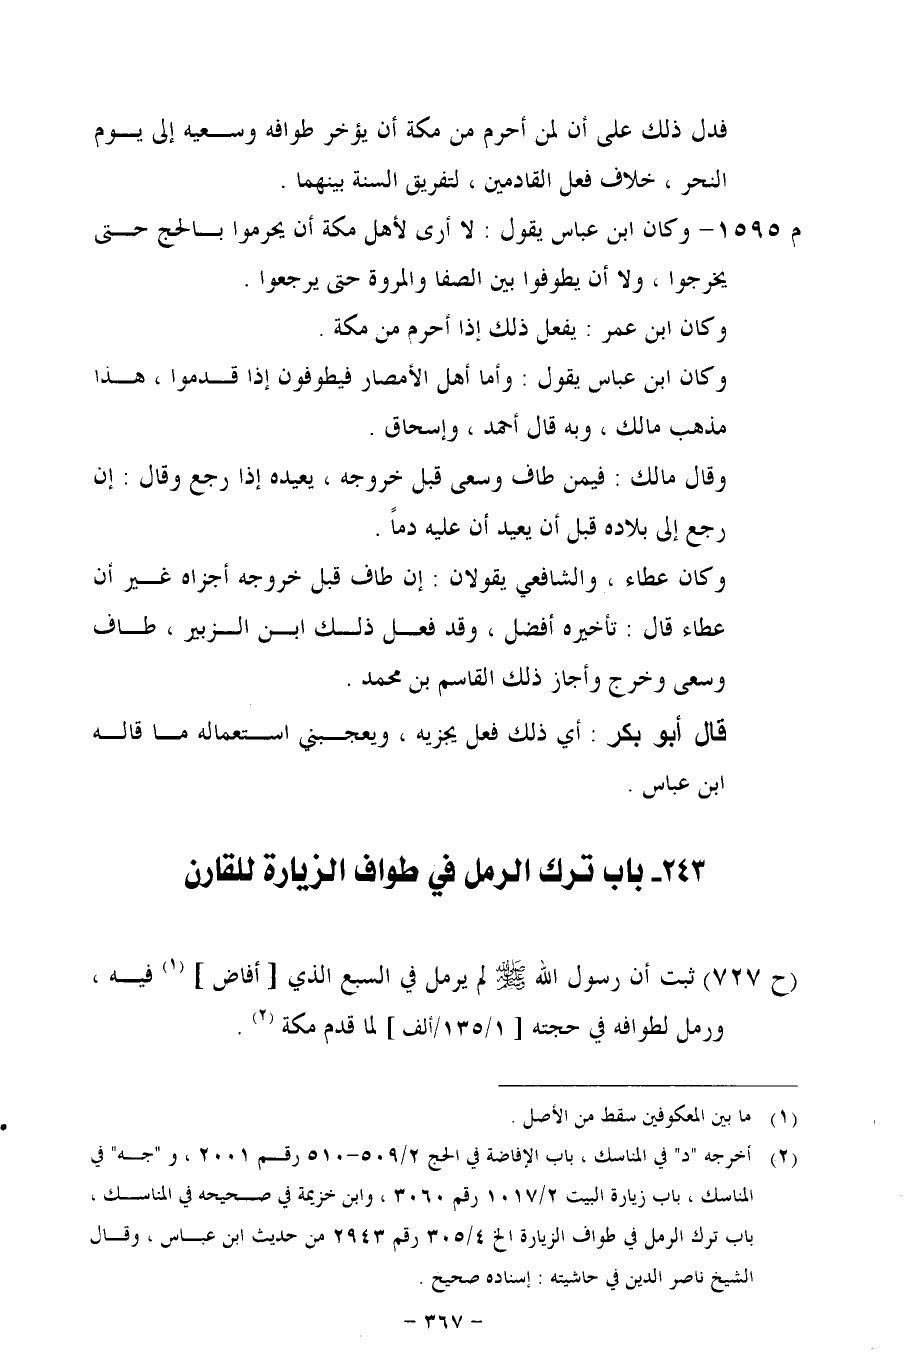 فدل ذلك على أن لمن أحرم من مكة أن يؤخر طوافه وسـعيه إلى يـوم
النحر ، خلاف فعل القادمين ، لتفريق السنة بينهما .
م ١٥٩٥- وكان ابن عباس يقول : لا أرى لأهل مكة أن يحرموا بـالحج حـتى
يخرجوا ، ولا أن يطوفوا بين الصفا والمروة حتى يرجعوا .
وكان ابن عمر : يفعل ذلك إذا أحرم من مكة .
وكان ابن عباس يقول : وأما أهل الأمصار فيطوفون إذا قـدموا ، هـذا
مذهب مالك ، وبه قال أحمد ، وإسحاق .
وقال مالك : فيمن طاف وسعى قبل خروجه ، يعيده إذا رجع وقال : إن
رجع إلى بلاده قبل أن يعيد أن عليه دماً .
وكان عطاء ، والشافعي يقولان : إن طاف قبل خروجه أجزاه غـير أن
عطاء قال : تأخيره أفضل ، وقد فعـل ذلـك ابـن الـزبير ، طـاف
وسعى وخرج وأجاز ذلك القاسم بن محمد .
قال أبو بكر : أي ذلك فعل يجزيه ، ويعجـبني اسـتعماله مـا قالـه
ابن عباس .
٢٤٣ـ باب ترك الرمل في طواف الزيارة للقارن
(ح ٧٢٧) ثبت أن رسول الله ﷺ لم يرمل في السبع الذي [ أفاض ] (١) فيـه ،
ورمل لطوافه في حجته [ ١٣٥/١/ألف ] لما قدم مكة (٢) .
(١) ما بين المعكوفين سقط من الأصل .
(٢) أخرجه "د" في المناسك ، باب الإفاضة في الحج ٥٠٩/٢-٥١٠ رقـم ٢٠٠١ ، و "جـه" في
المناسك ، باب زيارة البيت ١٠١٧/٢ رقم ٣٠٦٠ ، وابن خزيمة في صـحيحه في المناسـك ،
باب ترك الرمل في طواف الزيارة الخ ٣٠٥/٤ رقم ٢٩٤٣ من حديث ابن عبـاس ، وقـال
الشيخ ناصر الدين في حاشيته : إسناده صحيح .
- ٣٦٧ -